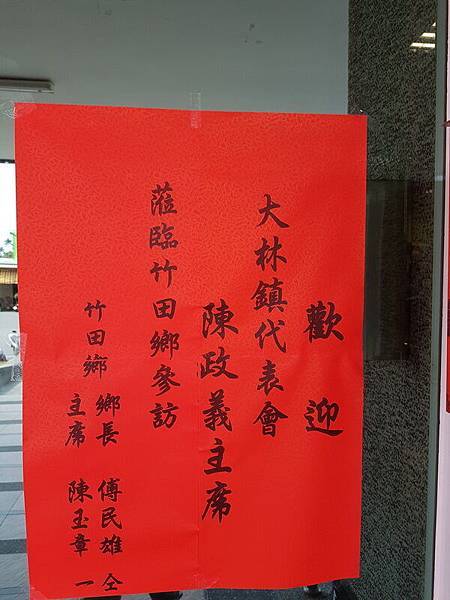 歡迎
大林鎮代表會
陳政義主席
蒞臨竹田鄉參訪
竹田鄉
鄉長 傅民雄 仝
主席 陳玉章 一